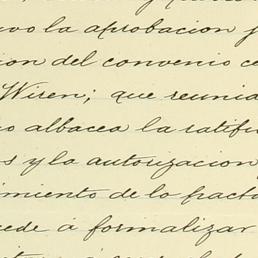 vo la aprobacion y
ion del convenio ce
Wiren; que reunia
o albacea la ratifi
s y la autorizacion
imiento de lo pacta
ede á formalizar